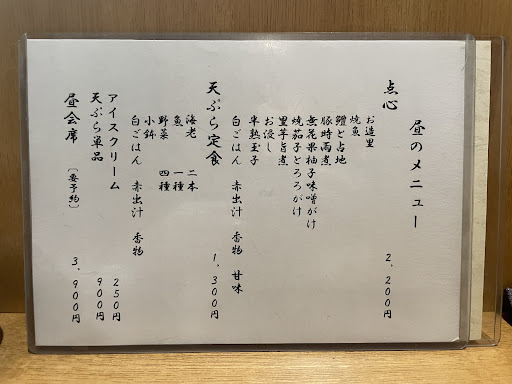 昼のメニュー
点心 2,200円
お造里
焼魚
鱈と占地
豚時雨煮
無花果柚子味噌がけ
焼茄子とろろがけ
里芋旨煮
お浸し
半熟玉子
白ごはん 赤出汁 香物 甘味
天ぷら定食 1,300円
海老 二本
魚 一種
野菜 四種
小鉢
白ごはん 赤出汁 香物
アイスクリーム 250円
天ぷら単品 900円
昼会席 〔要予約〕 3,900円